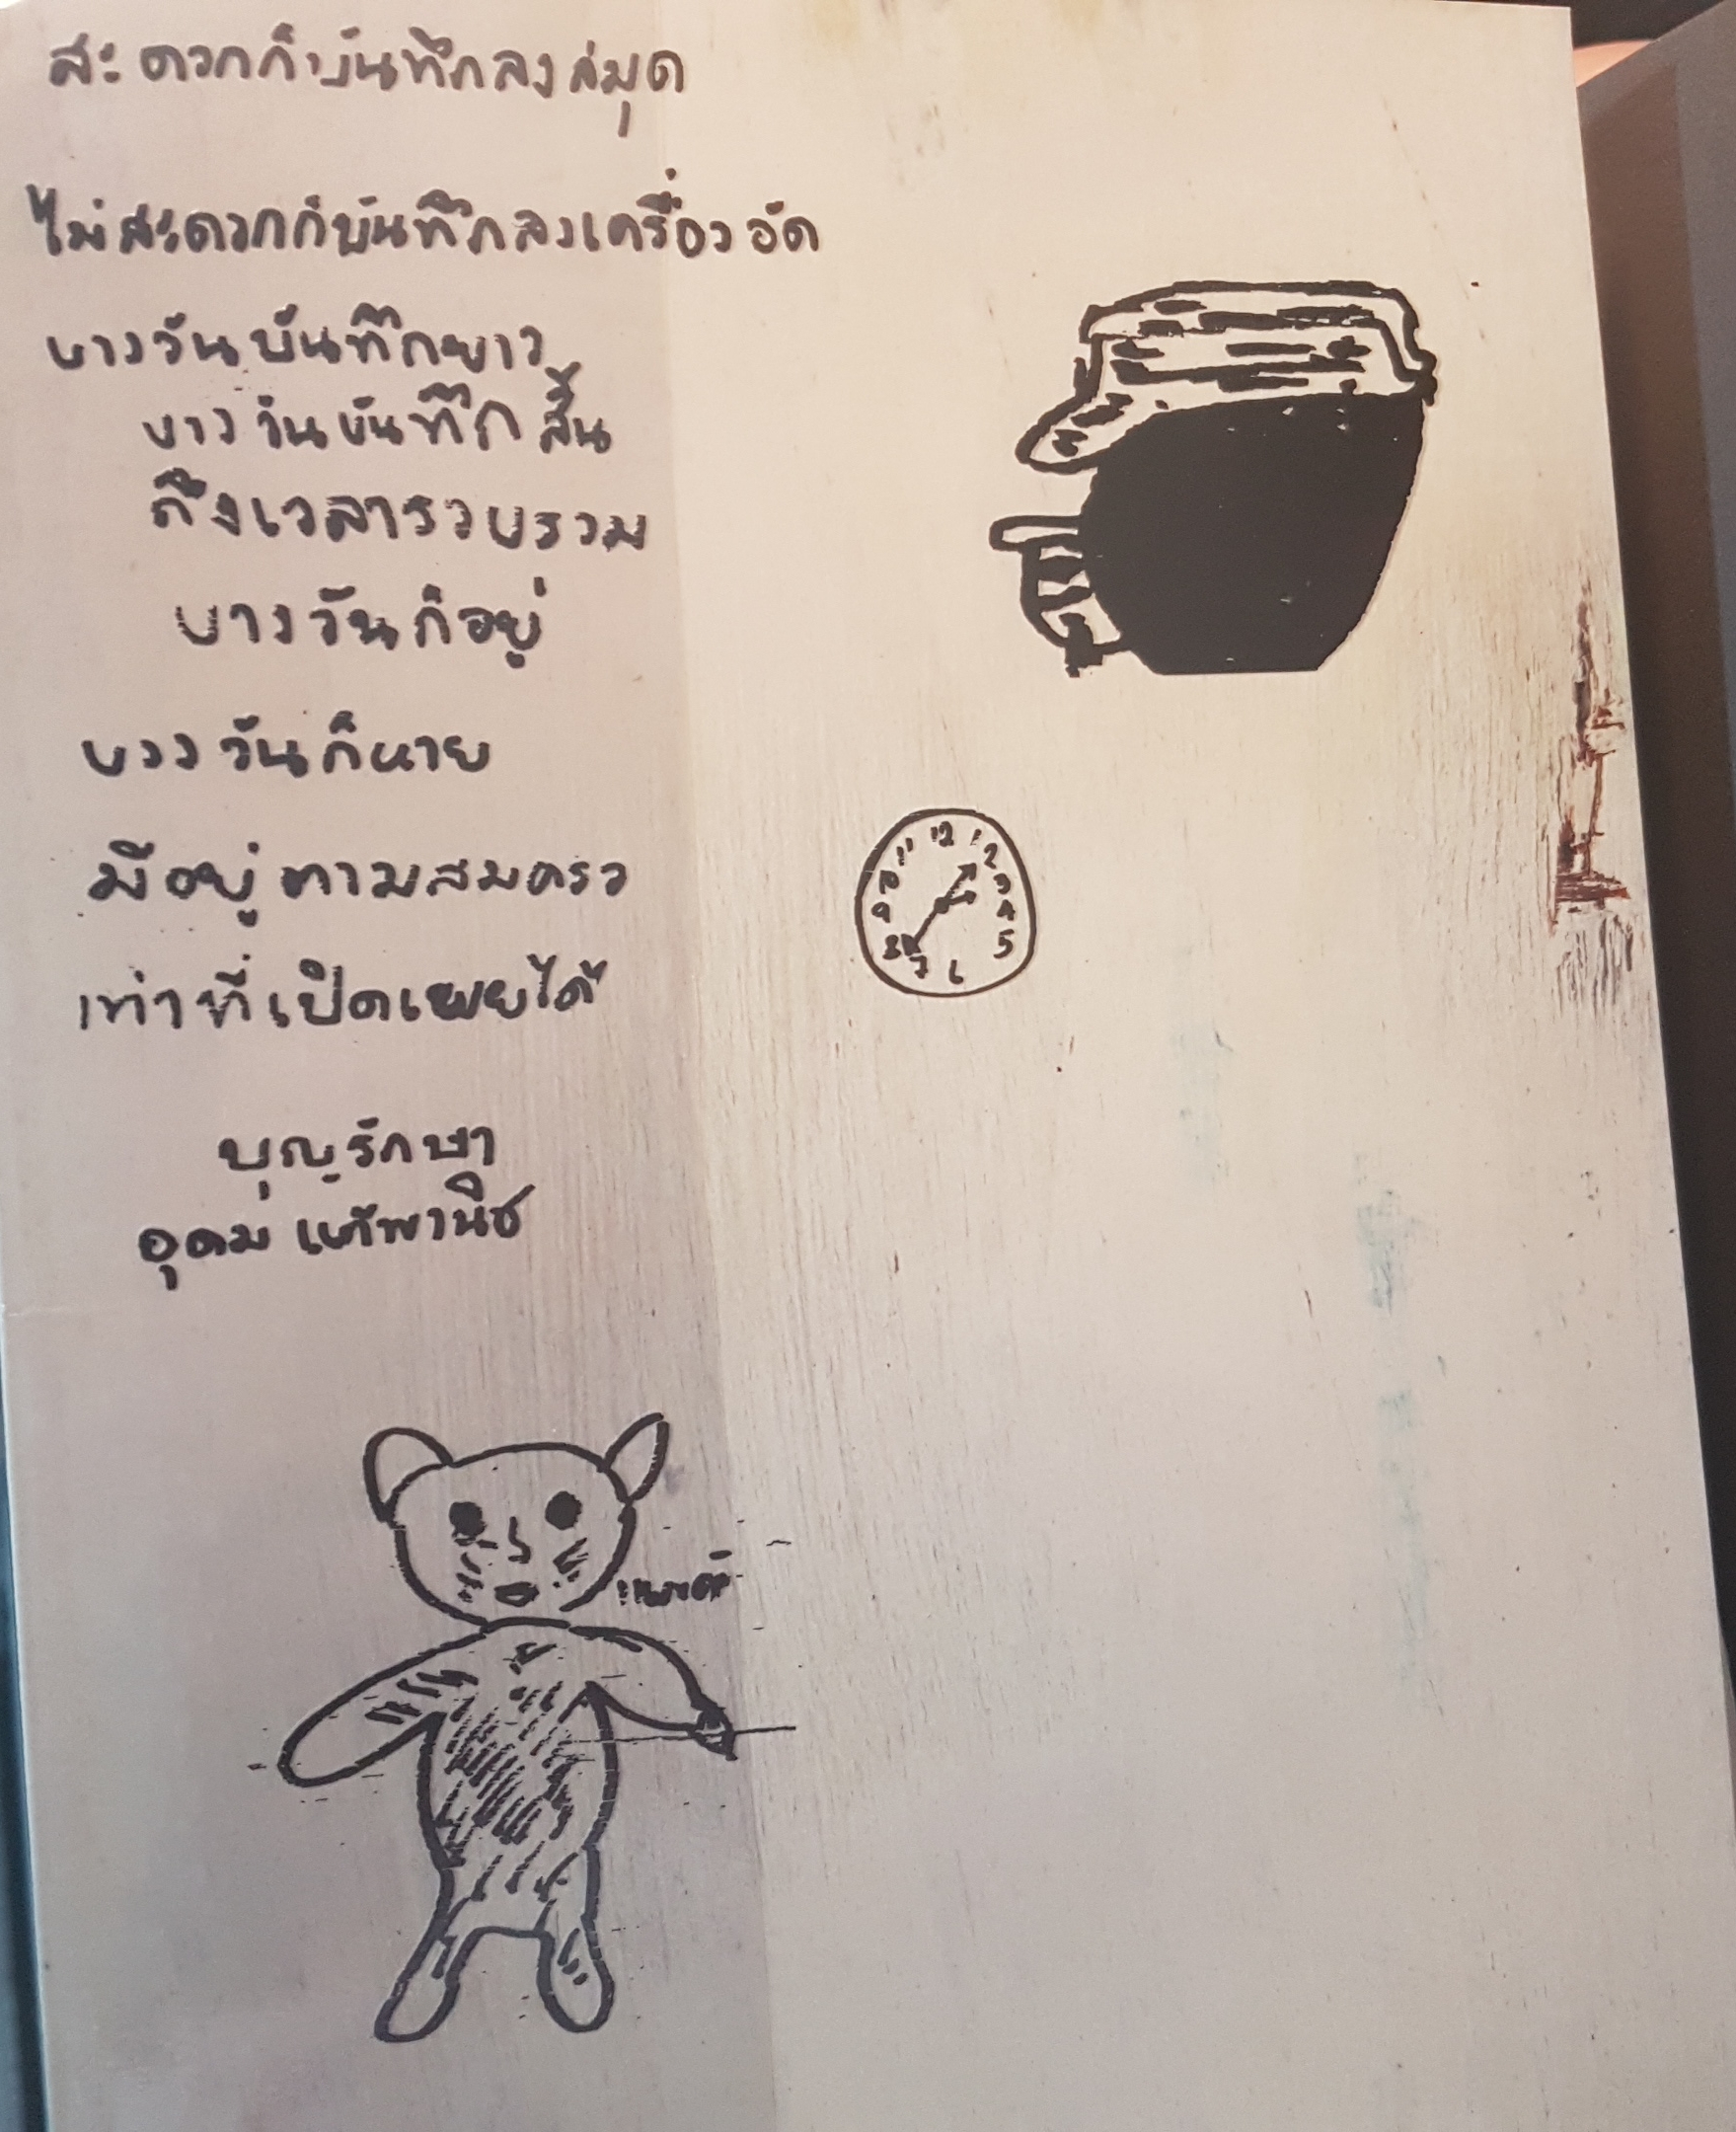 สะดวกก็บันทึกลงสมุด
ไม่สะดวกก็บันทึกลงเครื่องอัด
บางวันบันทึกยาว
บางวันบันทึกสั้น
ถึงเวลารวบรวม
บางวันก็อยู่
บางวันก็หาย
มีอยู่ตามสมควร
เท่าที่เปิดเผยได้
บุญรักษา
อุดม แต้พานิช
11 12 1
10 2
9 3
8 4
7 6 5